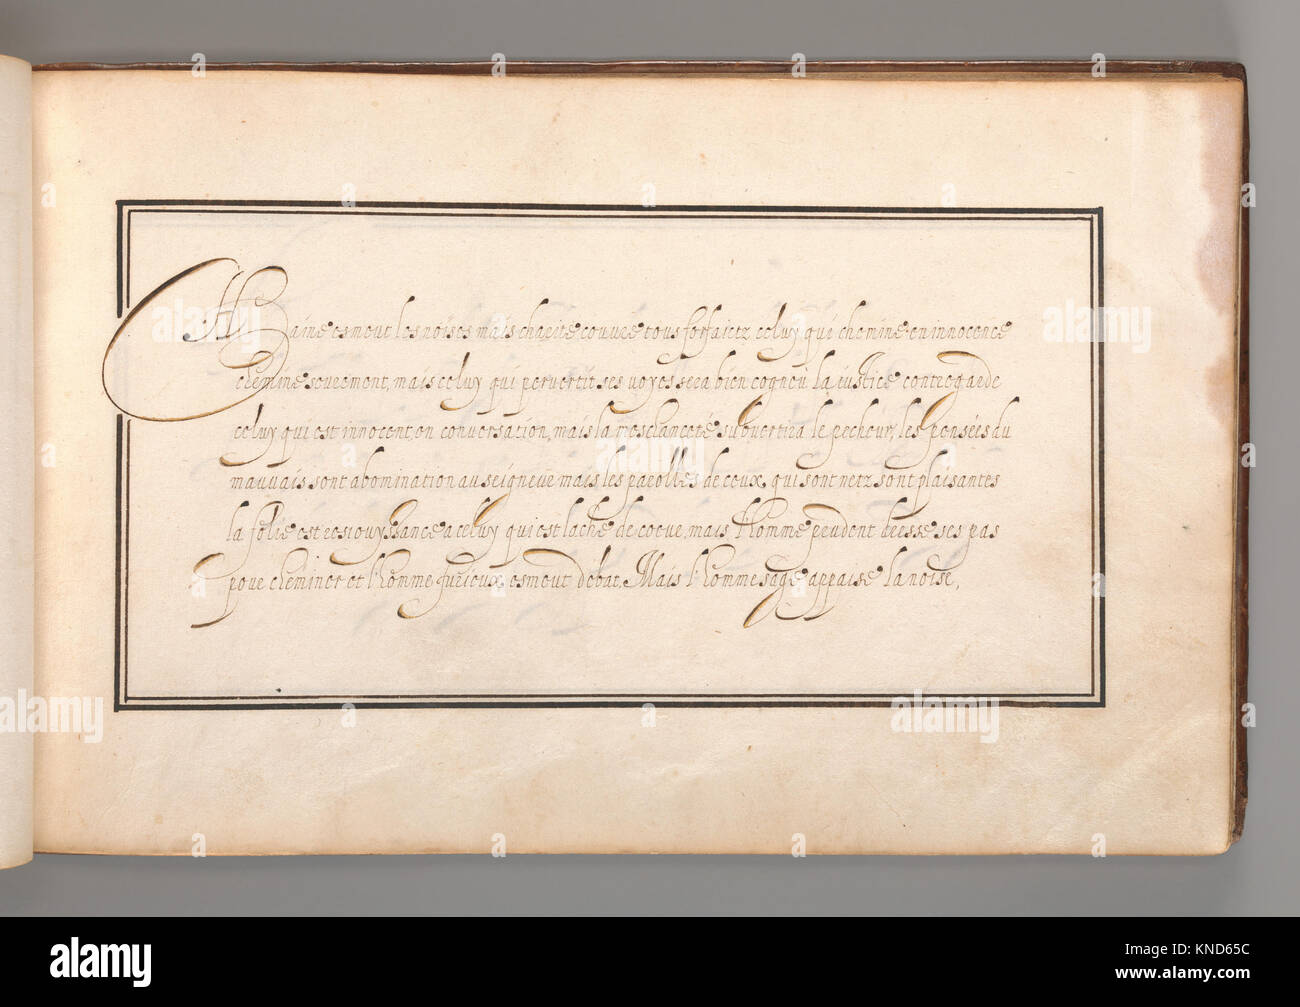 Haine esmeut les noises mais charité couvre tous forfaictz celuy qui chemine en innocence
chemine seurement, mais celuy qui pervertit ses voyes sera bien cogneu la iustice contregarde
celuy qui est innocent en conversation, mais la meschanceté subvertira le pecheur, les pensées du
mauvais sont abomination au seigneur mais les parolles de ceux, qui sont netz sont plaisantes
la folie est resiouyssance a celuy qui est lache de coeur, mais l'homme prudent dresse ses pas
pour cheminer et l'homme furieux esmeut debat, Mais l'homme sage appaise la noise,
alamy
Image ID: KND65C
www.alamy.com